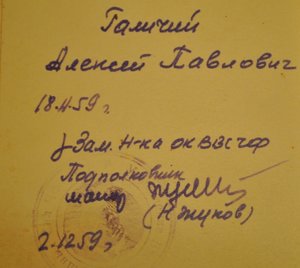 Галичий
Алексей Павлович
18.4.59 г.
Зам. Н-ка ОК ВВС ЧФ
Подполковник
(Н. Жуков)
2.12.59 г.